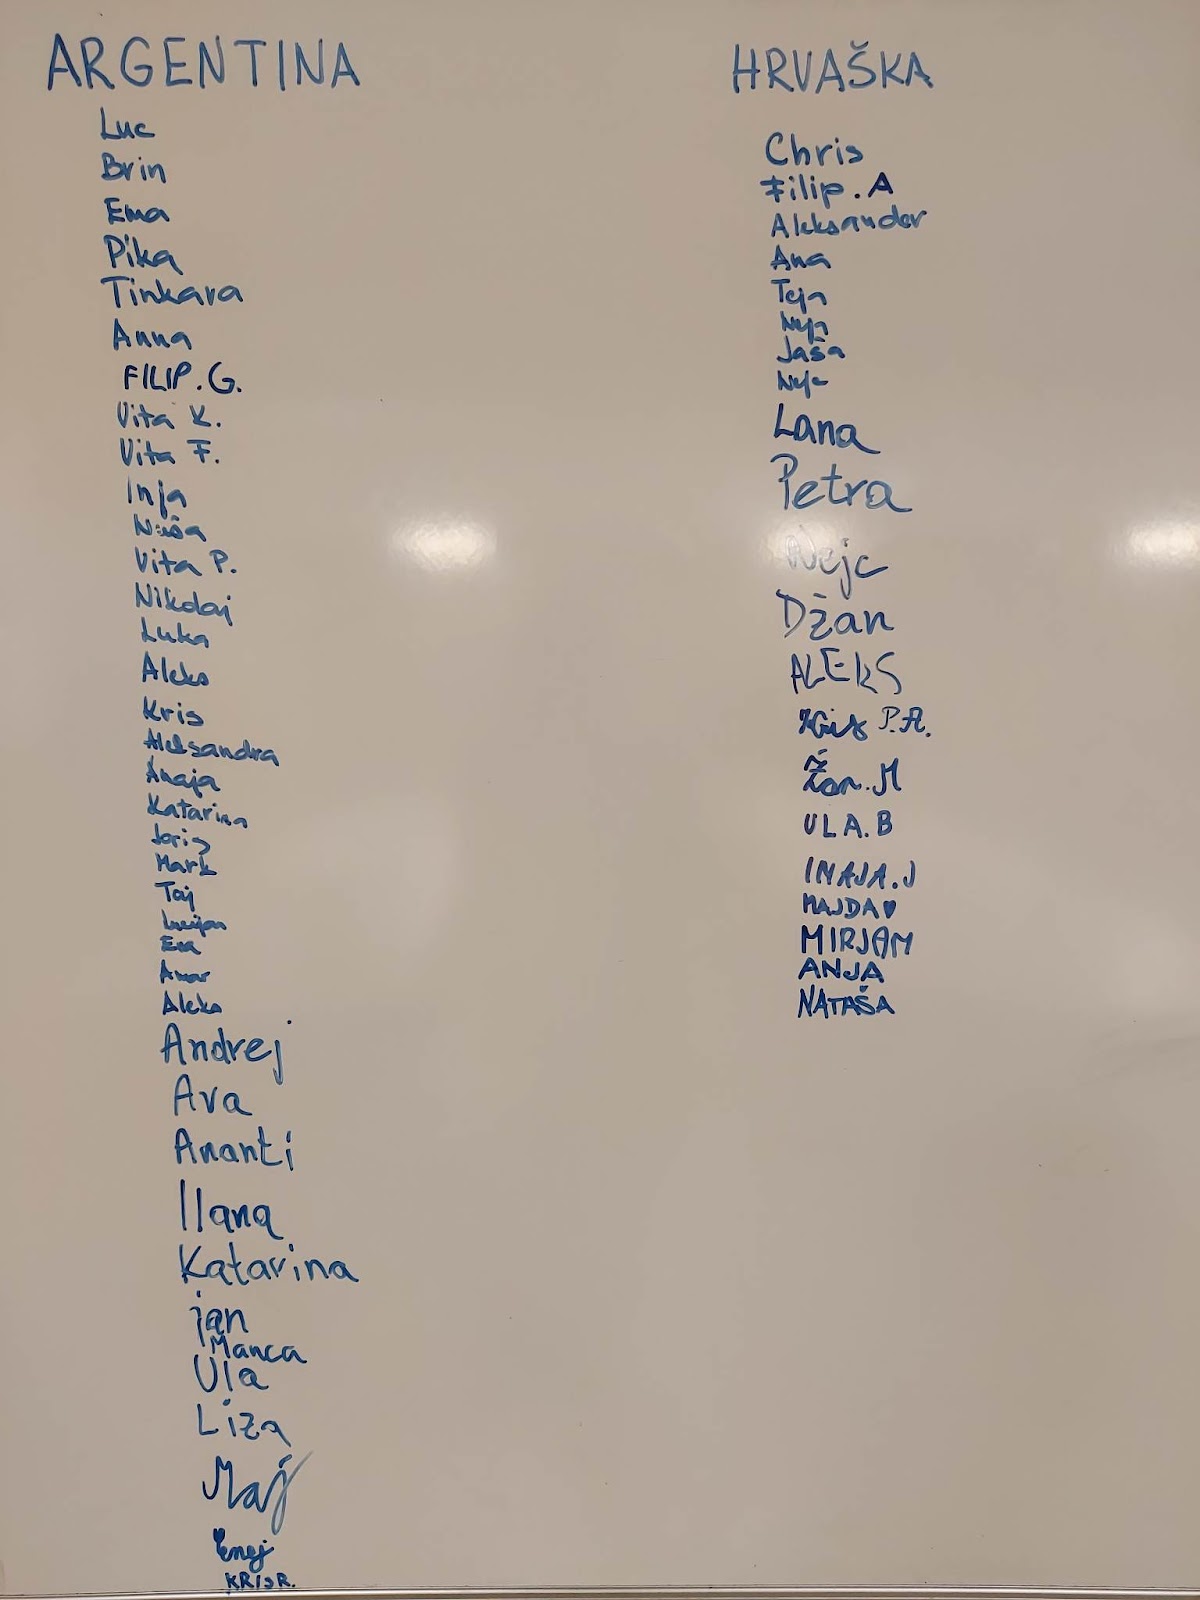 ARGENTINA
Luc
Brin
Ema
Pika
Tinkara
Anna
FILIP. G.
Vita K.
Vita F.
Inja
Nuša
Vita P.
Nikolaj
Luka
Aleks
Kris
Aleksandra
Anaja
Katarina
Joris
Mark
Taj
Lucijan
Eva
Amar
Aleks
Andrej
Ava
Ananti
Ilana
Katarina
jan
Manca
Ula
Liza
Maj
Enej
KRIS R.
HRVAŠKA
Chris
Filip. A
Aleksander
Ana
Teja
Neja
Jaša
Nejc
Lana
Petra
Nejc
Džan
ALEKS
P.A.
Žan. M
ULA. B
INAJA. J
MAJDA♥
MIRJAM
ANJA
NATAŠA